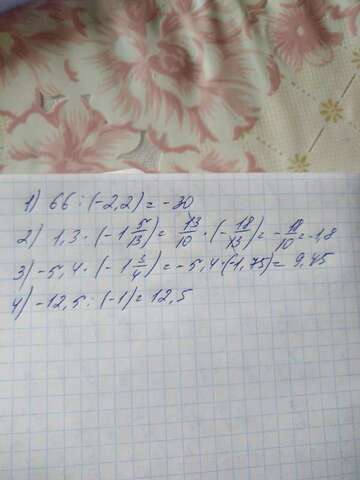 1) 66 : (-2,2) = -30
2) 1,3 · (-1 5/13) = 13/10 · (-18/13) = -18/10 = -1,8
3) -5,4 · (-1 3/4) = -5,4 · (-1,75) = 9,45
4) -12,5 : (-1) = 12,5